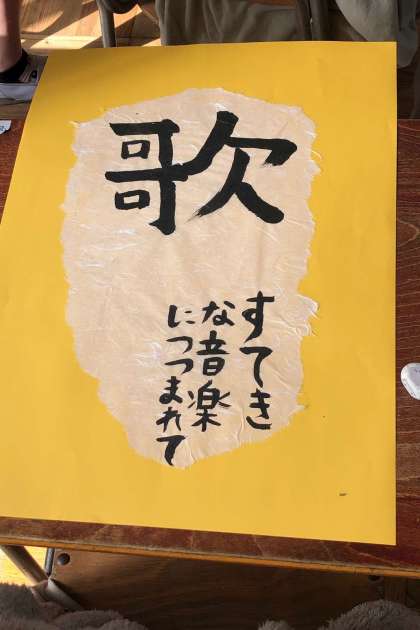 歌
すてき
な音楽
につつまれて